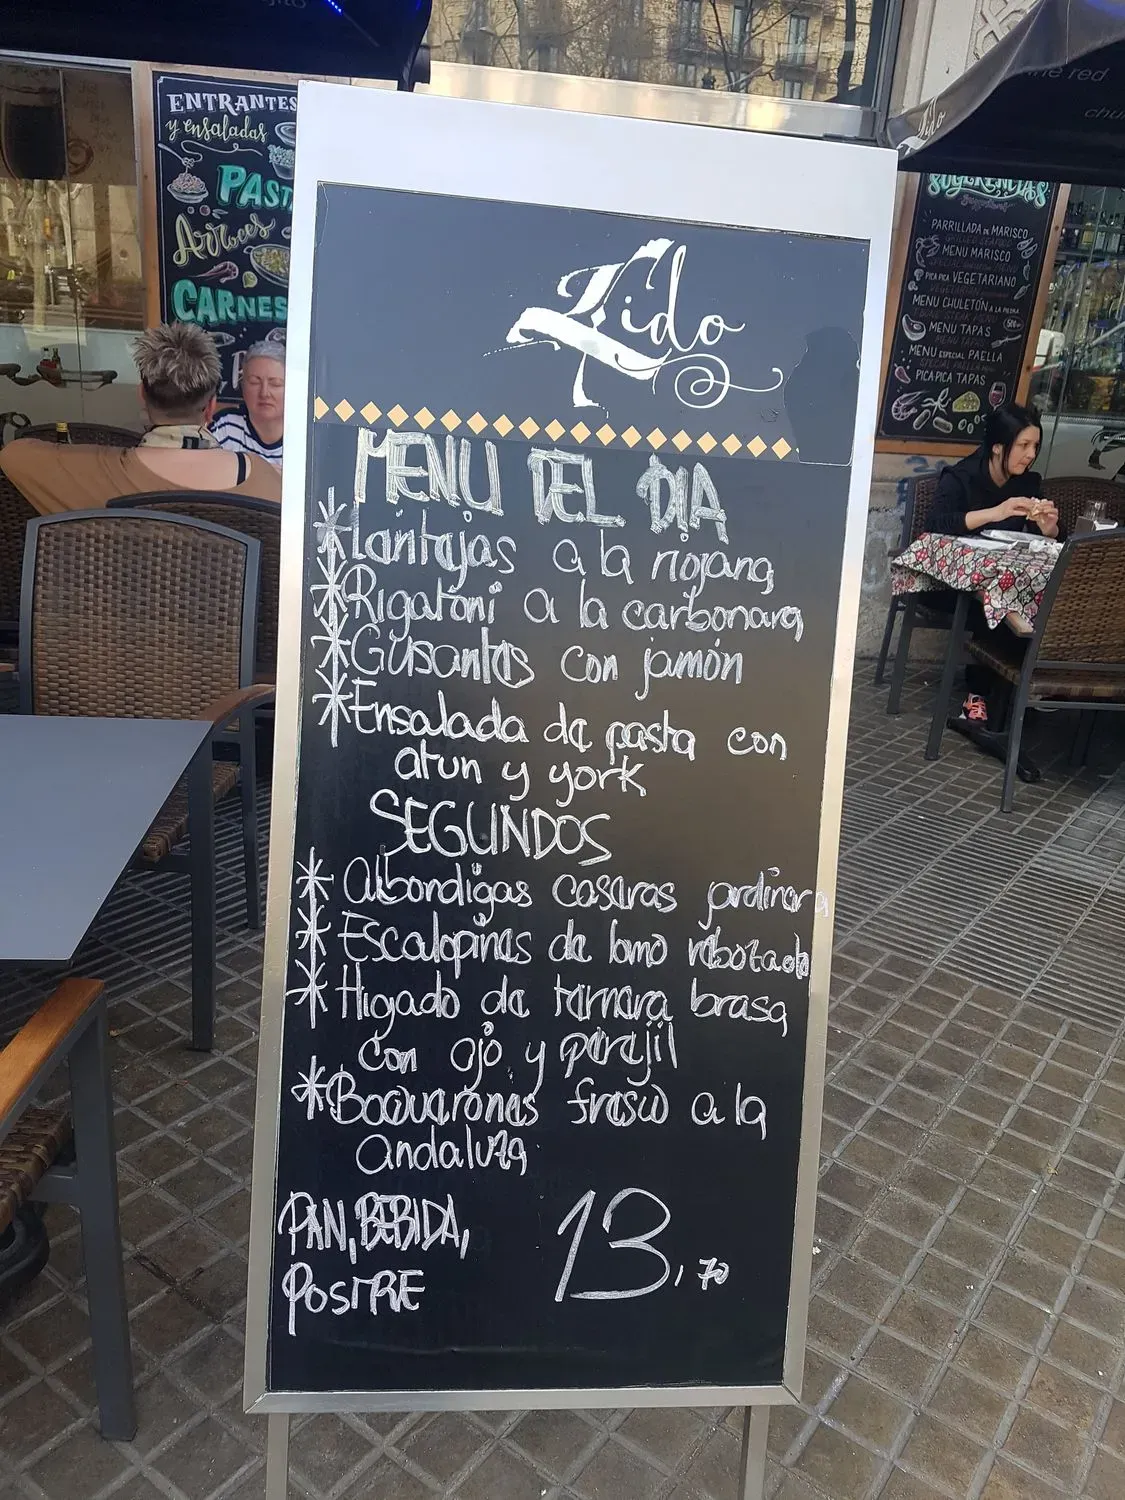 ENTRANTES
y ensaladas
PAST
Arroces
CARNES
Lido
MENU DEL DIA
*Lantajas a la riojana
*Rigatoni a la carbonara
*Gusantes con jamón
*Ensalada de pasta con
atun y york
SEGUNDOS
*Albondigas caseras jardinera
*Escalopines de lomo rebozado
*Higado de ternera brasa
con ajo y perejil
*Boquarones fresco a la
Andaluza
PAN, BEBIDA,
POSTRE
13,70
Lido
red
SUGERENCIAS
PARRILLADA DE MARISCO
MENU MARISCO
PICA PICA VEGETARIANO
MENU CHULETÓN A LA PIEDRA
MENU TAPAS
MENU TAPAS
MENU ESPECIAL PAELLA
PICA-PICA TAPAS